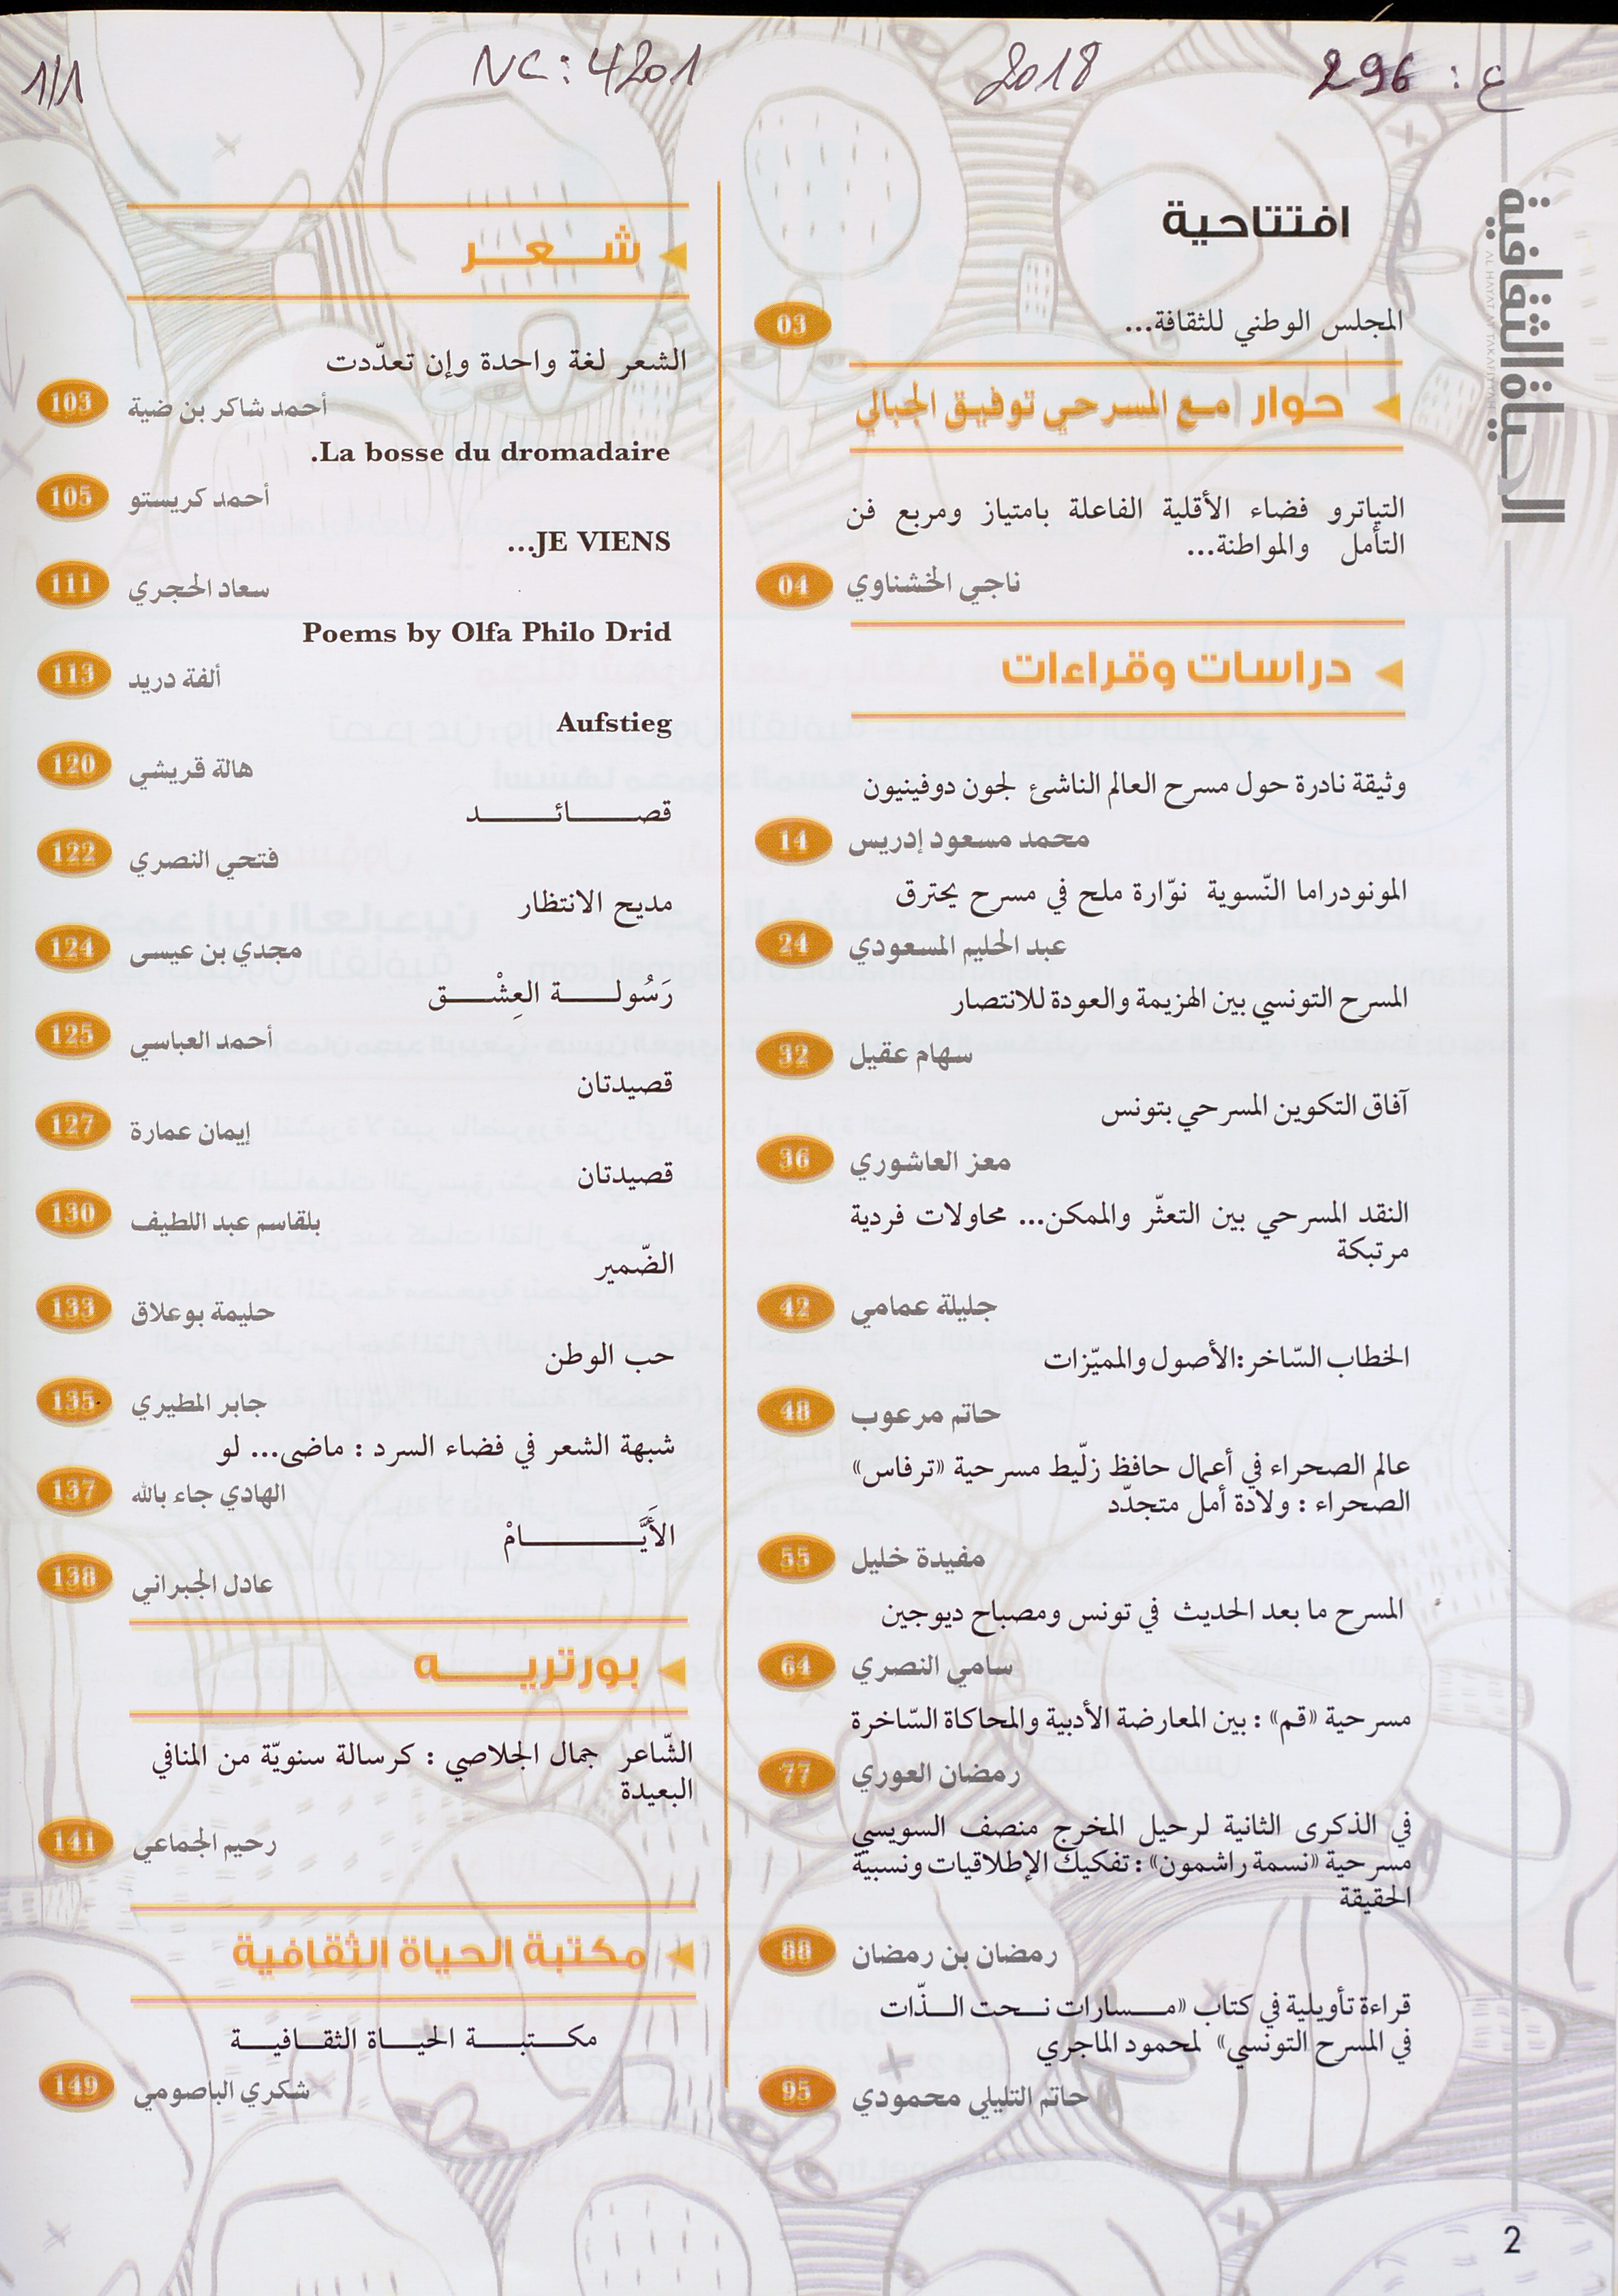 ع : 296
2018
NC : 4201
1/1
الحياة الثقافية
افتتاحية
المجلس الوطني للثقافة...
03
حوار مع المسرحي توفيق الجبالي
التياترو فضاء الأقلية الفاعلة بامتياز ومربع فن
التأمل والمواطنة...
ناجي الخشناوي 04
دراسات وقراءات
وثيقة نادرة حول مسرح العالم الناشئ لجون دوفينيون
محمد مسعود إدريس 14
المونودراما النّسوية نوّارة ملح في مسرح يحترق
عبد الحليم المسعودي 24
المسرح التونسي بين الهزيمة والعودة للانتصار
سهام عقيل 32
آفاق التكوين المسرحي بتونس
معز العاشوري 36
النقد المسرحي بين التعثّر والممكن... محاولات فردية
مرتبكة
جليلة عمامي 42
الخطاب السّاخر:الأصول والمميّزات
حاتم مرعوب 48
عالم الصحراء في أعمال حافظ زلّيط مسرحية «ترفاس»
الصحراء : ولادة أمل متجدّد
مفيدة خليل 55
المسرح ما بعد الحديث في تونس ومصباح ديوجين
سامي النصري 64
مسرحية «قم» : بين المعارضة الأدبية والمحاكاة السّاخرة
رمضان العوري 77
في الذكرى الثانية لرحيل المخرج منصف السويسي
مسرحية «نسمة راشمون» : تفكيك الإطلاقيات ونسبية
الحقيقة
رمضان بن رمضان 88
قراءة تأويلية في كتاب «مـسارات نـحت الـذّات
في المسرح التونسي» لمحمود الماجري
حاتم التليلي محمودي 95
شـعـر
الشعر لغة واحدة وإن تعدّدت
أحمد شاكر بن ضية 103
La bosse du dromadaire.
أحمد كريستو 105
JE VIENS...
سعاد الحجري 111
Poems by Olfa Philo Drid
ألفة دريد 113
Aufstieg
هالة قريشي 120
قصـائـد
فتحي النصري 122
مديح الانتظار
مجدي بن عيسى 124
رَسُولـة العِشْـق
أحمد العباسي 125
قصيدتان
إيمان عمارة 127
قصيدتان
بلقاسم عبد اللطيف 130
الضّمير
حليمة بوعلاق 133
حب الوطن
جابر المطيري 135
شبهة الشعر في فضاء السرد : ماضى... لو
الهادي جاء بالله 137
الأَيَّـامْ
عادل الجبراني 138
بورتريـه
الشّاعر جمال الجلاصي : كرسالة سنويّة من المنافي
البعيدة
رحيم الجماعي 141
مكتبة الحياة الثقافية
مكـتبـة الحيـاة الثقـافيـة
شكري الباصومي 149
2